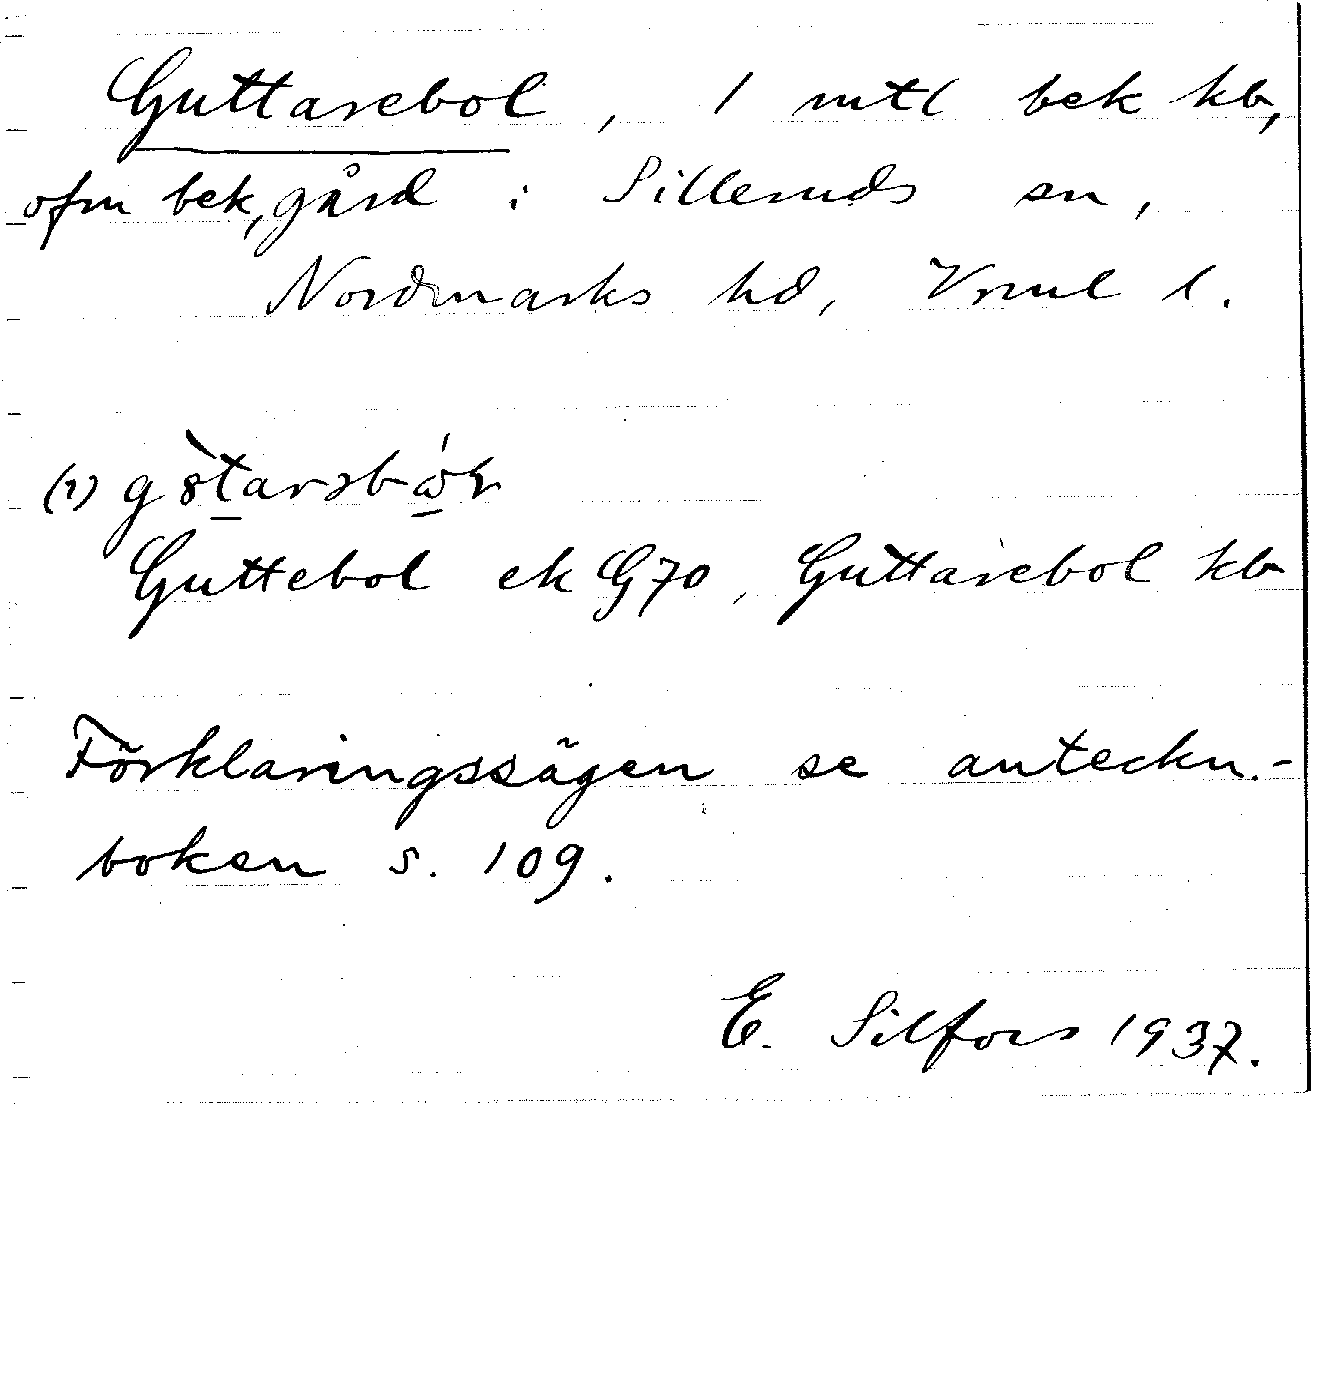 Guttarebol, 1 mtl bek kb,
ofm bek, gård i Silleruds sn,
Nordmarks hd, Vrml l.
(1)
Guttebol ek G70, Guttarebol kb
Förklaringssägen se anteckn.-
boken s. 109.
E. Silfors 1937.